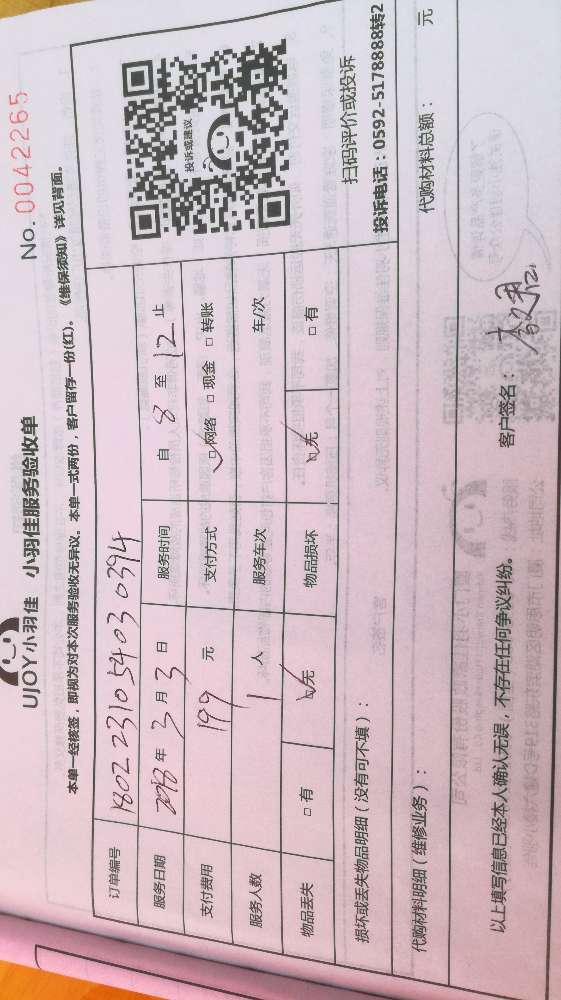 UJOY小羽佳 小羽佳服务验收单
No. 0042265
本单一经核签，即视为对本次服务验收无异议。本单一式两份，客户留存一份(红)。《维保须知》详见背面。
订单编号 1802231054030394
服务日期 2018年3月3日 服务时间 自 8 至 12 止
支付费用 199 元 支付方式 □网络 □现金 □转账
服务人数 1 人 服务车次 车/次
物品丢失 □有 □无 物品损坏 □无 □有
投诉或建议
扫码评价或投诉
投诉电话：0592-5178888转2
损坏或丢失物品明细（没有可不填）：
代购材料明细（维修业务）： 代购材料总额： 元
以上填写信息已经本人确认无误，不存在任何争议纠纷。 客户签名：